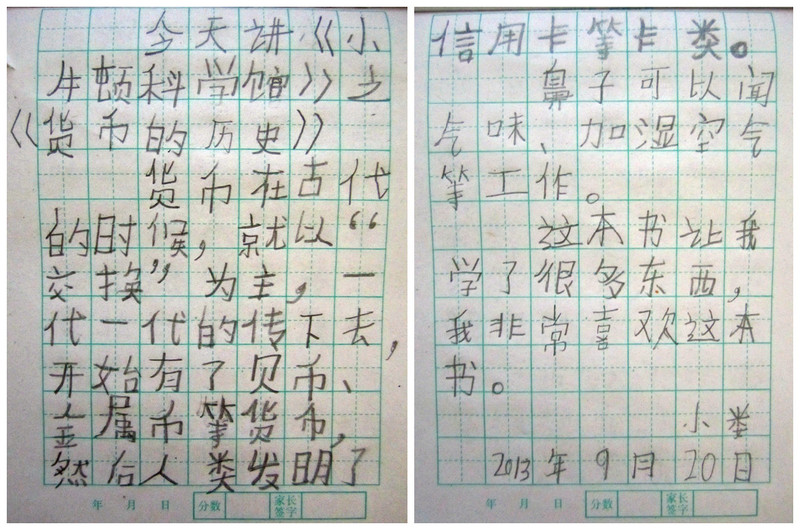 今天讲《小
牛顿科学馆》之
《货币的历史》
货币在古代
的时候，就以“
交换”为主，一
代一代的传下去，
开始有了贝币、
金属币等货币，
然后人类发明了
年 月 日 分数 家长签字
信用卡等卡类。
鼻子可以闻
气味、加湿空气
等工作。
这本书让我
学了很多东西，
我非常喜欢这本
书。
小娄
2013年9月20日
年 月 日 分数 家长签字